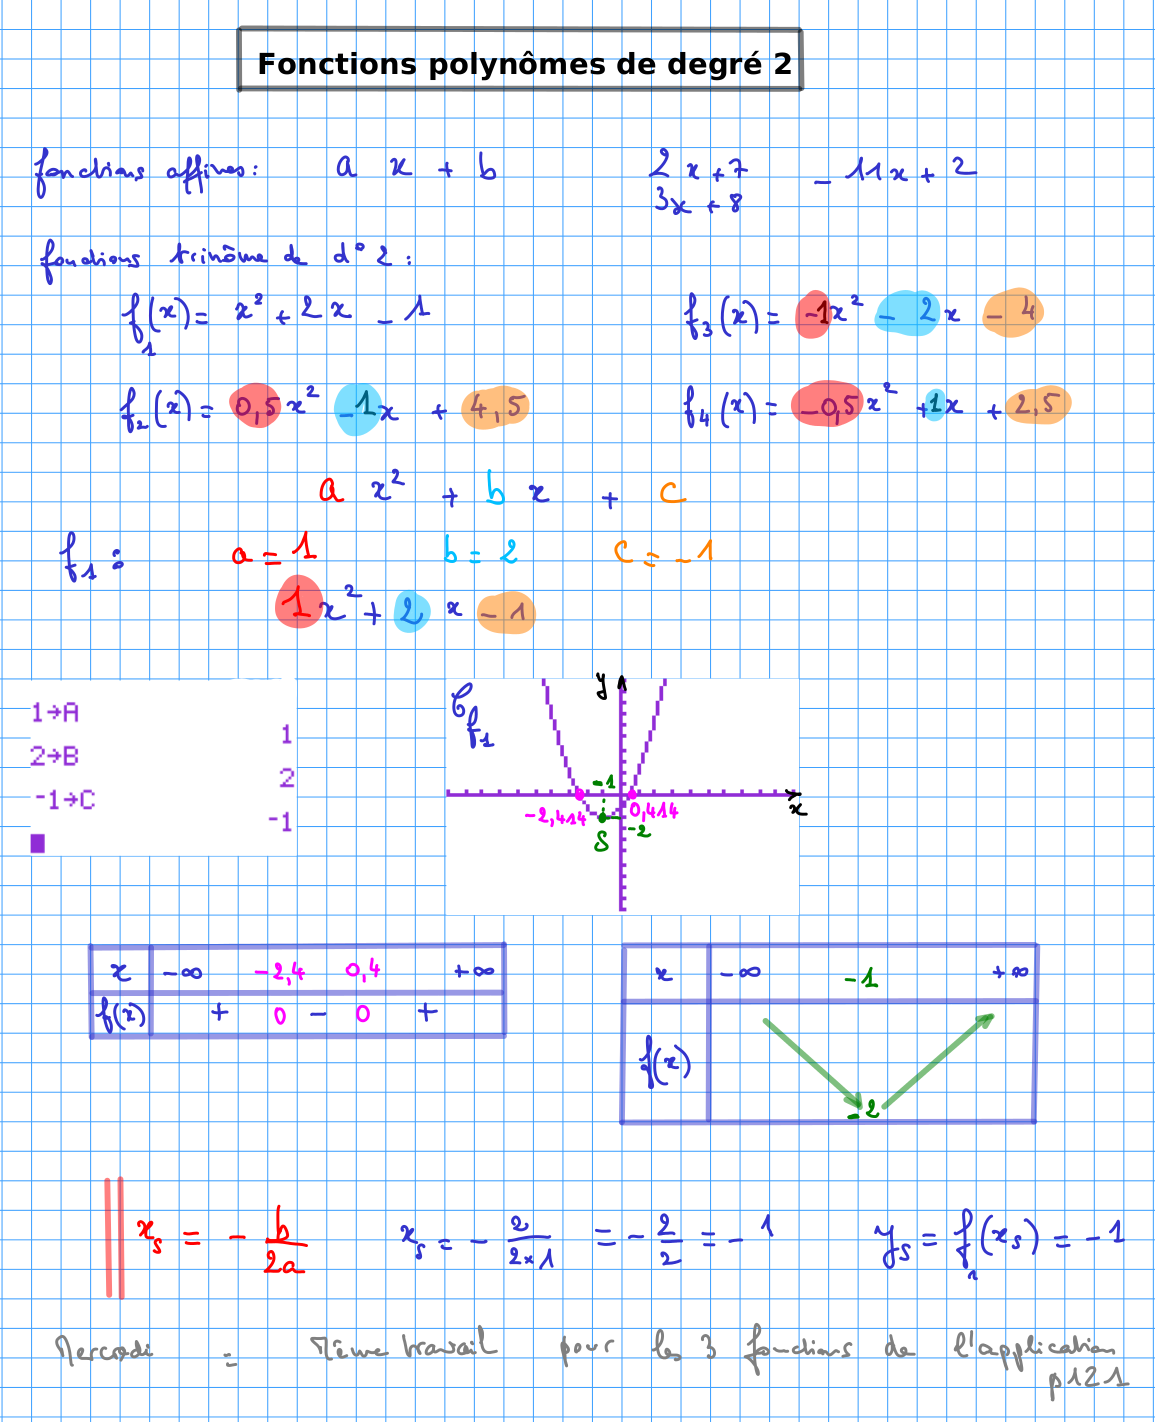 Fonctions polynômes de degré 2
fonctions affines : a x + b 2x + 7 - 11x + 2
3x + 8
fonctions trinôme de d° 2 :
f₁(x) = x² + 2x - 1 f₃(x) = -1x² - 2x - 4
f₂(x) = 0,5x² -1x + 4,5 f₄(x) = -0,5x² +1x + 2,5
a x² + b x + c
f₁ : a = 1 b = 2 c = -1
1x² + 2x - 1
1→A
1
2→B
2
-1→C
-1
C f₁ y
-1
-2,414 0,414 x
S -2
x -∞ -2,4 0,4 +∞
f(x) + 0 - 0 +
x -∞ -1 +∞
f(x)
-2
xₛ = - b/2a xₛ = - 2/2×1 = - 2/2 = - 1 yₛ = f₁(xₛ) = - 1
Mercredi : Même travail pour les 3 fonctions de l'application
p121